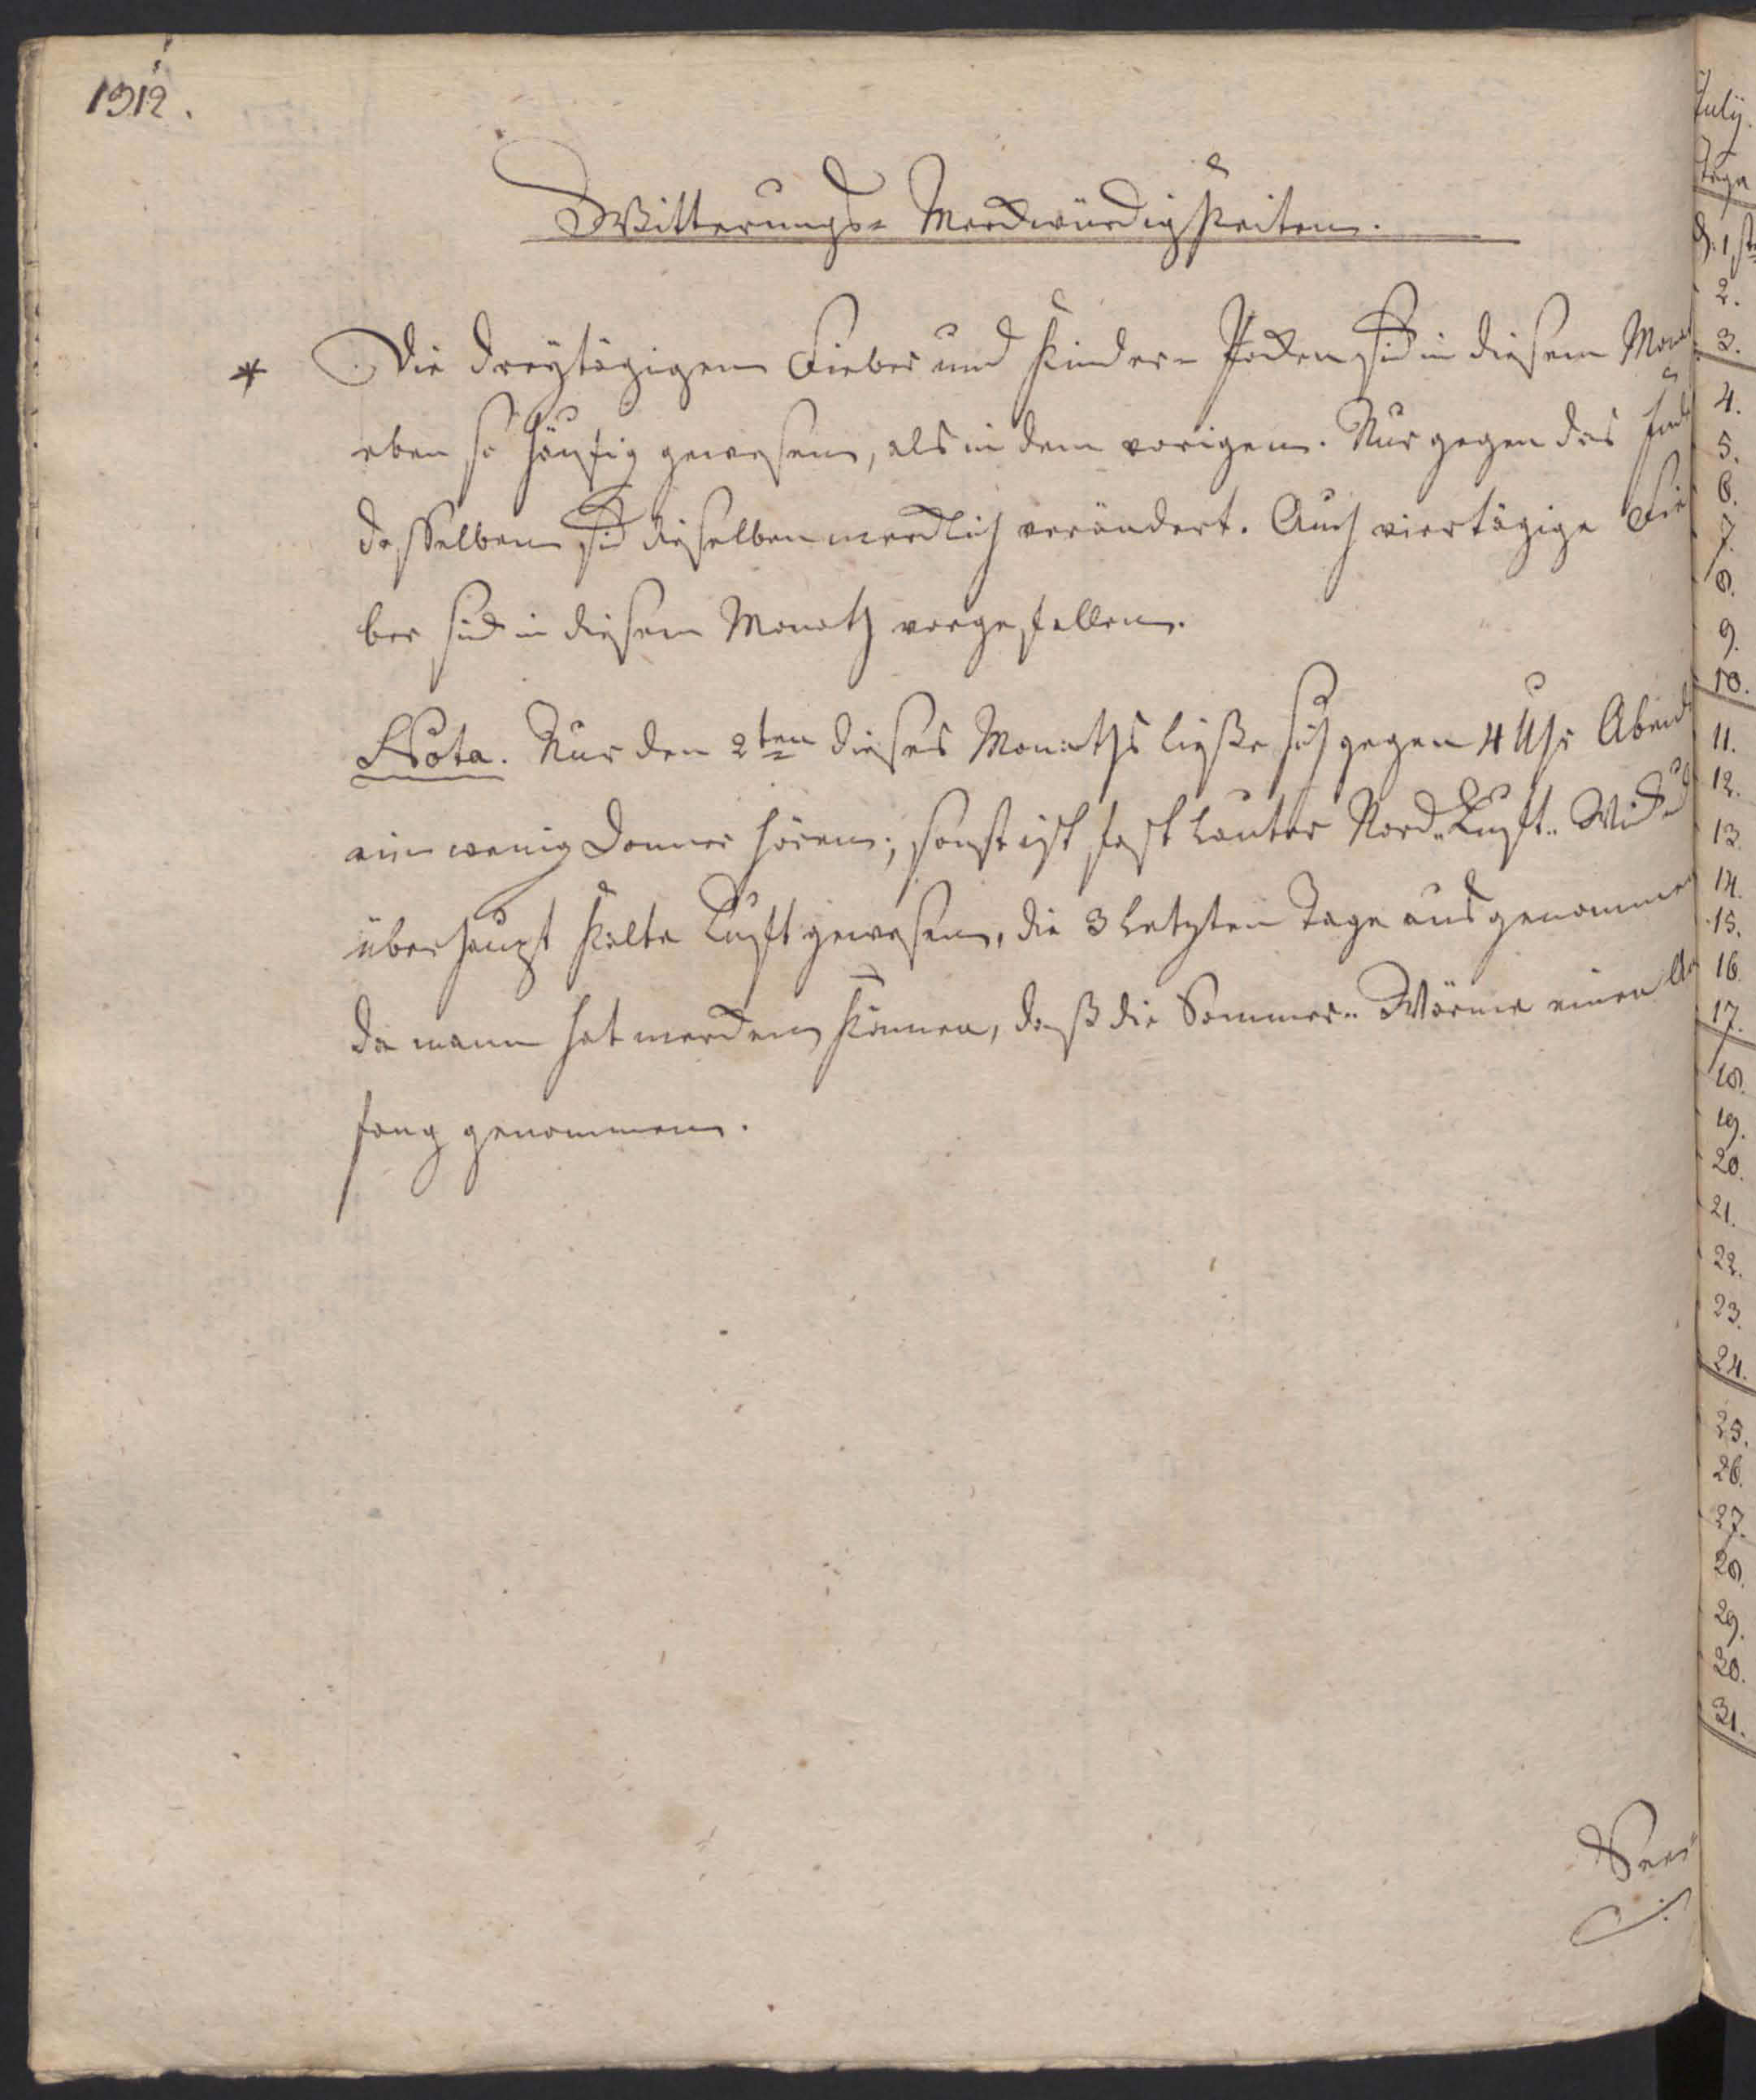 1312.
Witterungs-Merckwürdigkeiten.
* Die dreÿtägigen Fieber und Kinder-Pocken sind in diesem Mona
eben so häufig gewesen, als in dem vorigen. Nur gegen das End
desselben sind dieselben mercklich verändert. Auch viertägige Fie
ber sind in diesem Monath vorgefallen.
Nota. Nur den 2ten dieses Monaths ließe sich gegen 4 Uhr Abend
ein wenig Donner hören; sonst ist fast lauter Nord-Lufft-Wind u
überhaupt kalte Lufft gewesen, die 3 letzten Tage ausgenommen
da mann hat mercken können, daß die Sommer-Wärme einen An
fang genommen.
July.
Tage
d. 1ste
2.
3.
4.
5.
6.
7.
8.
9.
10.
11.
12.
13.
14.
15.
16.
17.
18.
19.
20.
21.
22.
23.
24.
25.
26.
27.
28.
29.
20.
31.